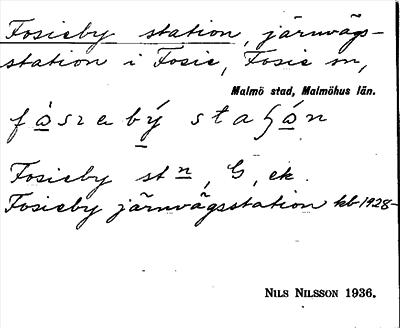 Fosieby station, järnvägs-
station i Fosie, Fosie sn,
Malmö stad, Malmöhus län.
Fosieby stn, G, ek.
Fosieby järnvägsstation kb 1928-
NILS NILSSON 1936.